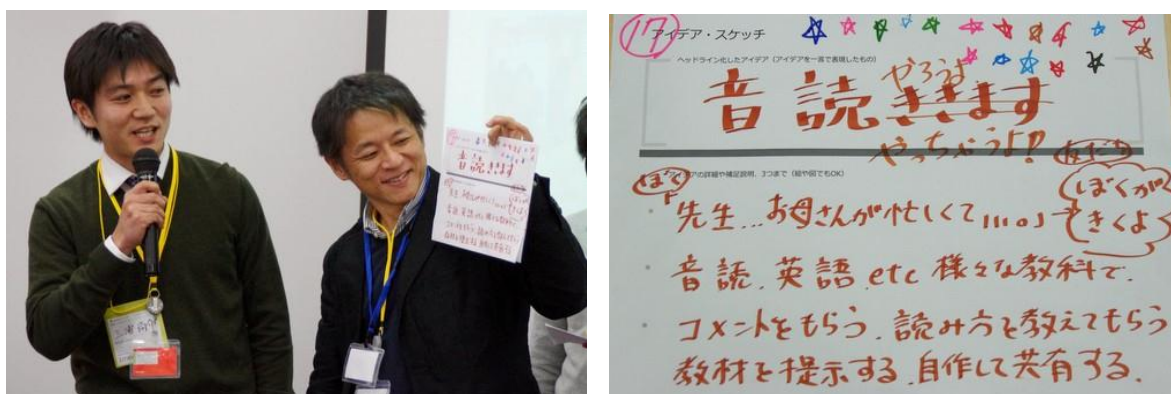 17
アイデア・スケッチ
ヘッドライン化したアイデア（アイデアを一言で表現したもの）
やろうよ
音読ききます
やっちゃうよ!!
アイデアの詳細や補足説明、3つまで（絵や図でもOK）
友だち
ぼく
「先生…お母さんが忙しくて……。」
ぼくが
きくよ
・音読、英語etc様々な教科で、
・コメントをもらう、読み方を教えてもらう
教材を提示する、自作して共有する。